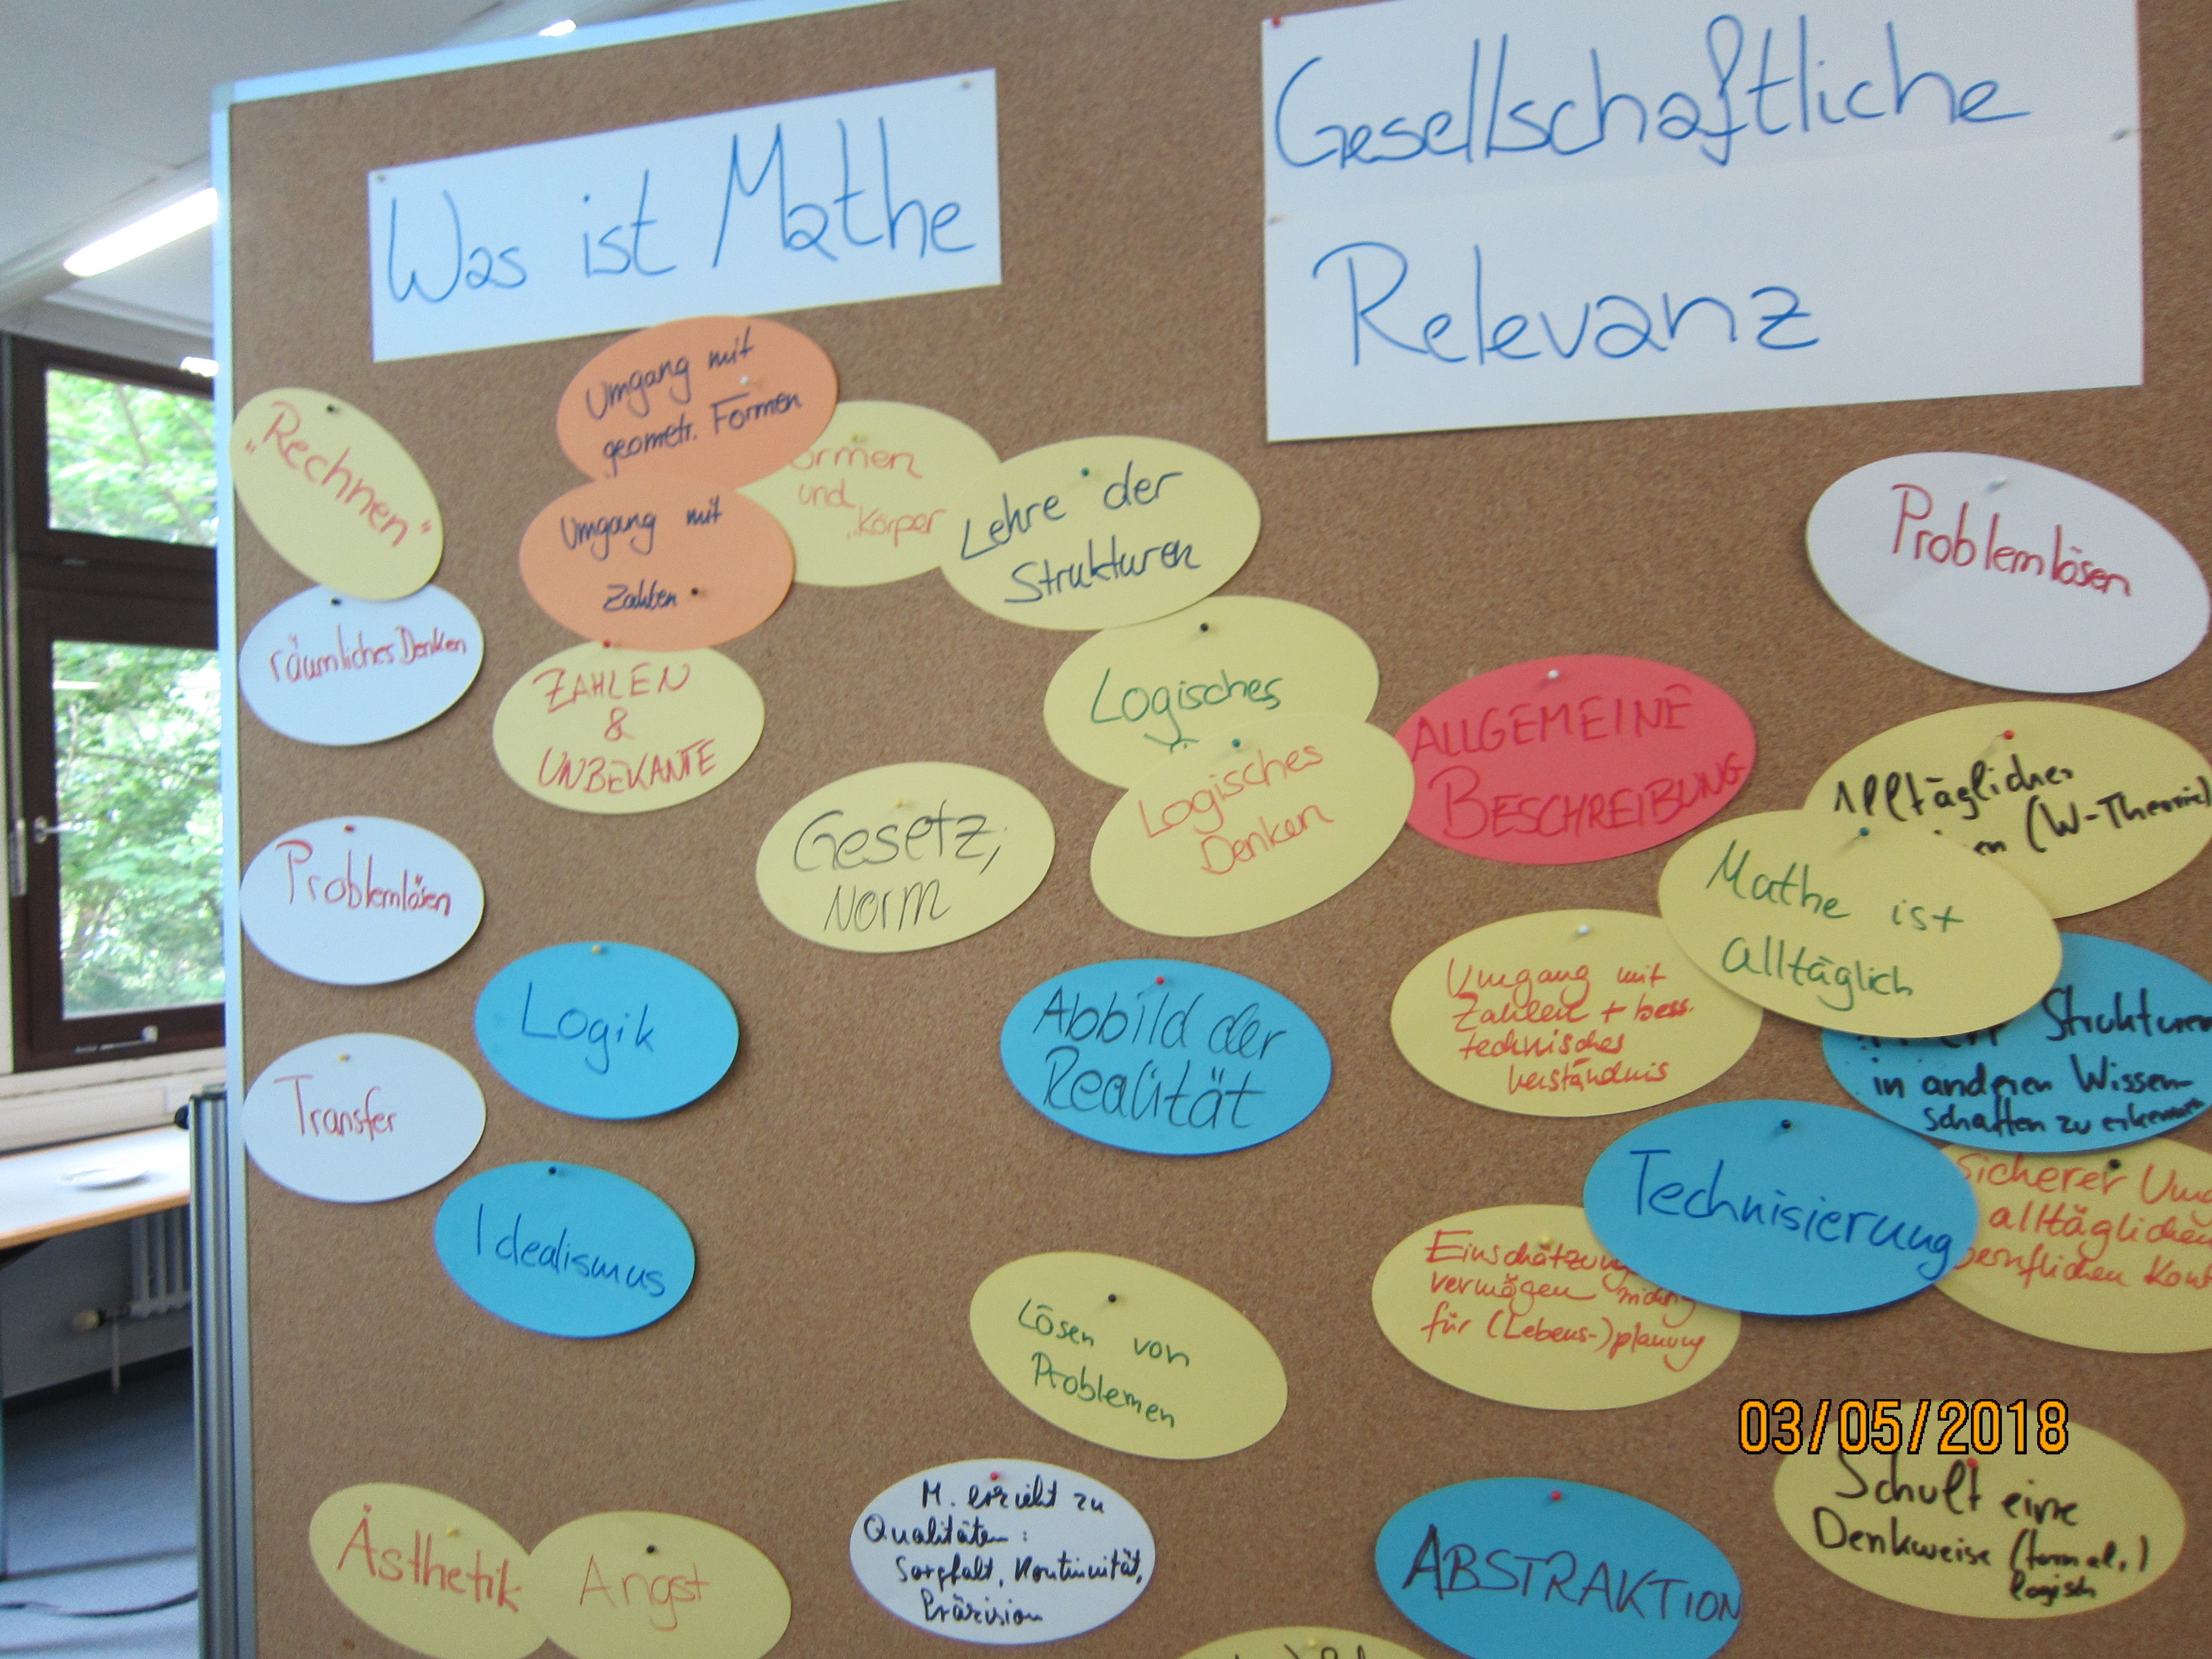 Was ist Mathe
Gesellschaftliche
Relevanz
„Rechnen“
räumliches Denken
Problemlösen
Transfer
Umgang mit
geometr. Formen
Umgang mit
Zahlen
ormen
und
Körper
Lehre der
Strukturen
ZAHLEN
&
UNBEKANTE
Logisches
Logisches
Denken
Gesetz,
Norm
Logik
Idealismus
Abbild der
Realität
Lösen von
Problemen
Ästhetik
Angst
M. erzieht zu
Qualitäten:
Sorgfalt, Kontinuität,
Präzision
ALLGEMEINE
BESCHREIBUNG
Problemlösen
Alltägliches
en (W-Theorie)
Mathe ist
alltäglich
Umgang mit
Zahlen + bess.
technisches
Verständnis
Strukturen
in anderen Wissen-
schaften zu erkennen
Technisierung
Sicherer Umg
alltäglichen
beruflichen Kont
Einschätzung
vermögen
für (Lebens-)planung
ABSTRAKTION
Schult eine
Denkweise (formal,)
logisch
03/05/2018